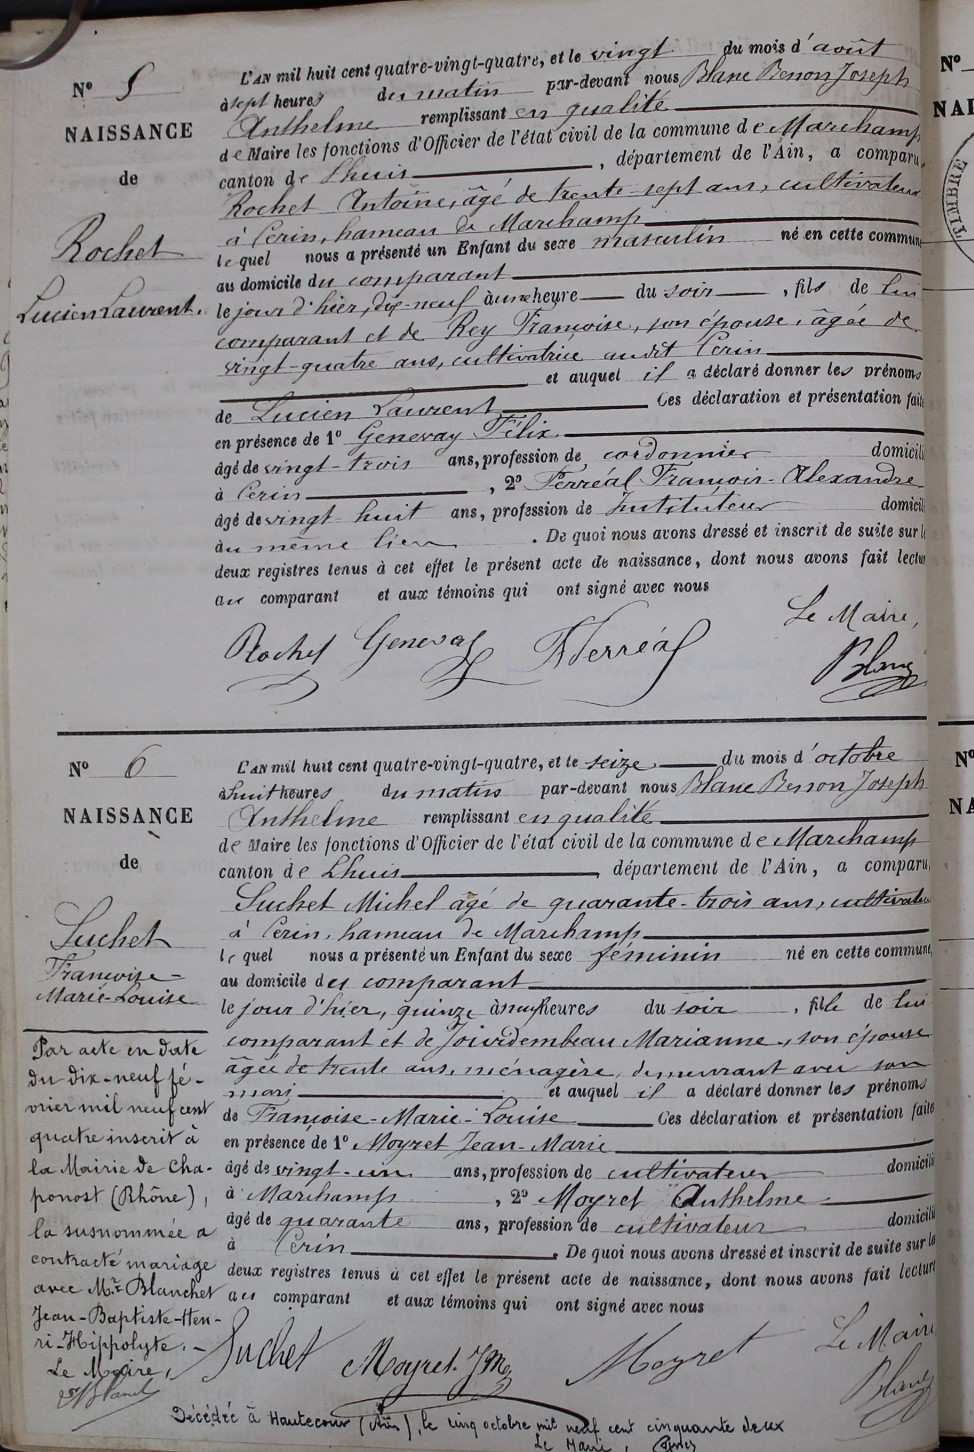 Nº 5
NAISSANCE
de
Rochet
Lucien Laurent.
L'AN mil huit cent quatre-vingt-quatre, et le vingt du mois d'août
à sept heures du matin par-devant nous Blanc Benon Joseph
Anthelme remplissant en qualité
de Maire les fonctions d'Officier de l'état civil de la commune de Marchamp
canton de Lhuis, département de l'Ain, a comparu
Rochet Antoine, âgé de trente-sept ans, cultivateur
à Cerin, hameau de Marchamp
lequel nous a présenté un Enfant du sexe masculin né en cette commune
au domicile du comparant
le jour d'hier, dix-neuf à une heure du soir, fils de lui
comparant et de Rey Françoise, son épouse, âgée de
vingt-quatre ans, cultivatrice audit Cerin
et auquel il a déclaré donner les prénoms
de Lucien Laurent Ces déclaration et présentation faite
en présence de 1º Genevay Félix
âgé de vingt-trois ans, profession de cordonnier domicili
à Cerin, 2º Ferréal François-Alexandre
âgé de vingt-huit ans, profession de Instituteur domicili
au même lieu. De quoi nous avons dressé et inscrit de suite sur l
deux registres tenus à cet effet le présent acte de naissance, dont nous avons fait lectur
au comparant et aux témoins qui ont signé avec nous
Le Maire,
Rochet Genevay Ferréal Blanc
Nº 6
NAISSANCE
de
Suchet
Françoise-
Marie-Louise
L'AN mil huit cent quatre-vingt-quatre, et le seize du mois d'octobre
à huit heures du matin par-devant nous Blanc Benon Joseph
Anthelme remplissant en qualité
de Maire les fonctions d'Officier de l'état civil de la commune de Marchamp
canton de Lhuis, département de l'Ain, a comparu
Suchet Michel âgé de quarante-trois ans, cultivateur
à Cerin, hameau de Marchamp
lequel nous a présenté un Enfant du sexe féminin né en cette commune
au domicile des comparant
le jour d'hier, quinze à neuf heures du soir, fille de lui
comparant et de Jourdembeau Marianne, son épouse
âgée de trente ans, ménagère, demeurant avec son
mari et auquel il a déclaré donner les prénoms
de Françoise-Marie-Louise Ces déclaration et présentation faite
en présence de 1º Moyret Jean-Marie
âgé de vingt-un ans, profession de cultivateur domicili
à Marchamp, 2º Moyret Anthelme
âgé de quarante ans, profession de cultivateur domicili
à Cerin. De quoi nous avons dressé et inscrit de suite sur les
deux registres tenus à cet effet le présent acte de naissance, dont nous avons fait lecture
au comparant et aux témoins qui ont signé avec nous
Le Maire
Suchet Moyret JM Moyret Blanc
Par acte en date
du dix-neuf fé-
vrier mil neuf cent
quatre inscrit à
la Mairie de Cha-
ponost (Rhône),
la susnommée a
contracté mariage
avec Mr Blanchet
Jean-Baptiste-Hen-
ri-Hippolyte.-
Le Maire,
Blanc
Décédée à Hautecour (Ain), le cinq octobre mil neuf cent cinquante deux
Le Maire,
Nº
NAI
TIMBRE
Nº
NA